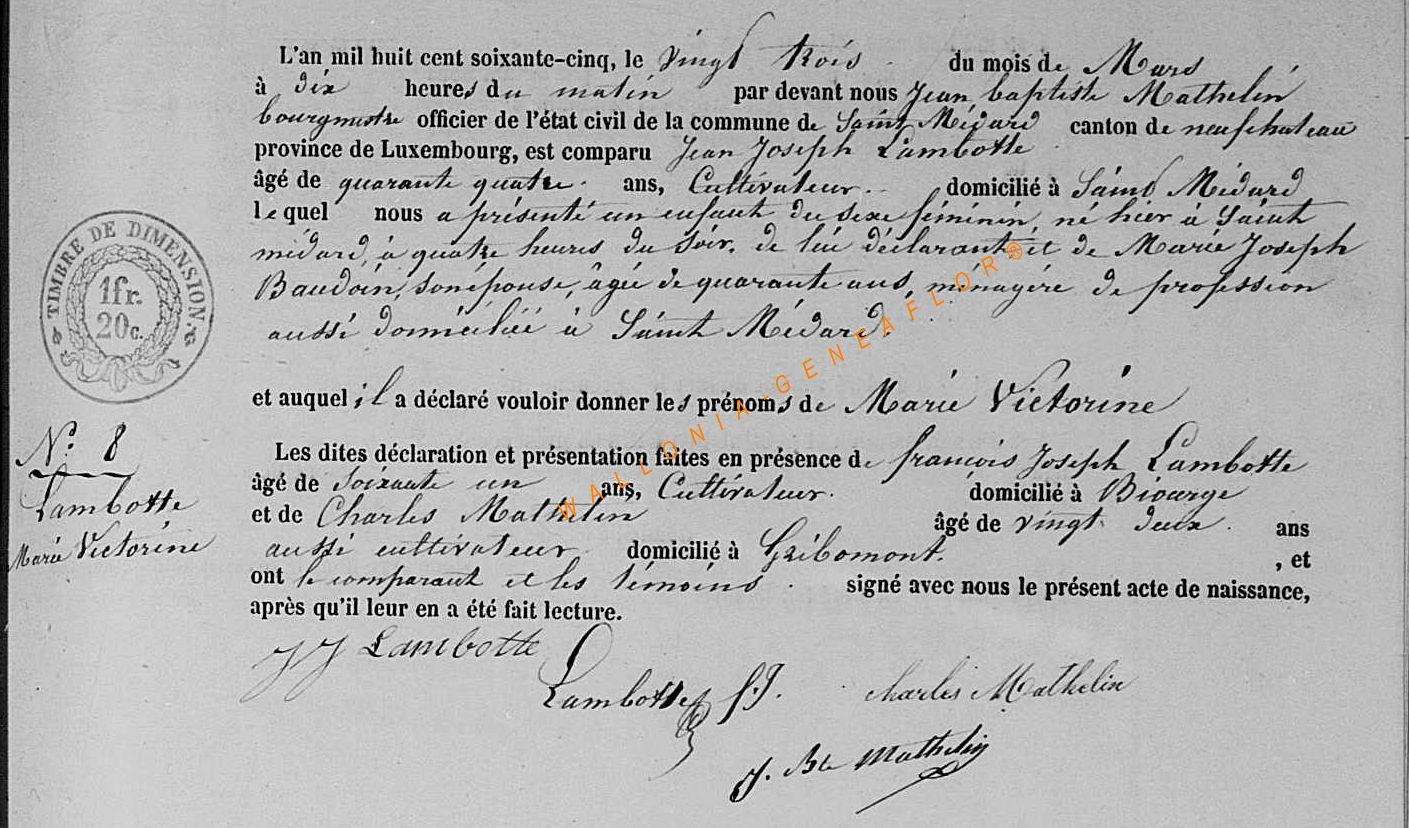 L'an mil huit cent soixante-cinq, le vingt trois du mois de Mars
à dix heures du matin par devant nous Jean baptiste Mathelin
bourgmestre officier de l'état civil de la commune de Saint Médard canton de neufchateau
province de Luxembourg, est comparu Jean Joseph Lambotte
âgé de quarante quatre ans, Cultivateur domicilié à Saint Médard
lequel nous a présenté un enfant du sexe féminin, né hier à Saint
médard, à quatre heures du soir, de lui déclarant et de Marie Joseph
Baudoin, son épouse, âgée de quarante ans, ménagère de profession
aussi domiciliée à Saint Médard.
et auquel il a déclaré vouloir donner les prénoms de Marie Victorine
Les dites déclaration et présentation faites en présence de françois Joseph Lambotte
âgé de soixante un ans, Cultivateur. domicilié à Biourge
et de Charles Mathelin âgé de vingt deux ans
aussi cultivateur domicilié à Gribomont. , et
ont le comparant et les témoins signé avec nous le présent acte de naissance,
après qu'il leur en a été fait lecture.
JJ Lambotte
Lambotte f.J. charles Mathelin
J. Bte Mathelin
TIMBRE DE DIMENSION
1fr.
20c.
N° 8
Lambotte
Marie Victorine
WALLONIA-GENEAFLOR®